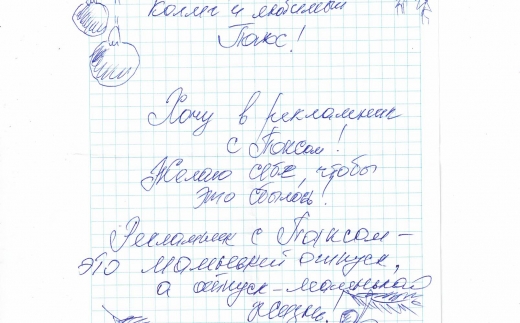 коллег и любимый
Покс!
Хочу в рекламник
с Поксом!
Желаю себе, чтобы
это сбылось!
Рекламник с Поксом –
это маленький отпуск,
а отпуск – маленькая
жизнь!